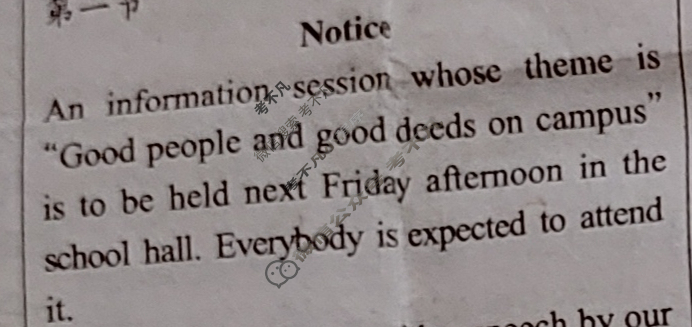 第一节
Notice
An information session whose theme is
“Good people and good deeds on campus”
is to be held next Friday afternoon in the
school hall. Everybody is expected to attend
it.
by our